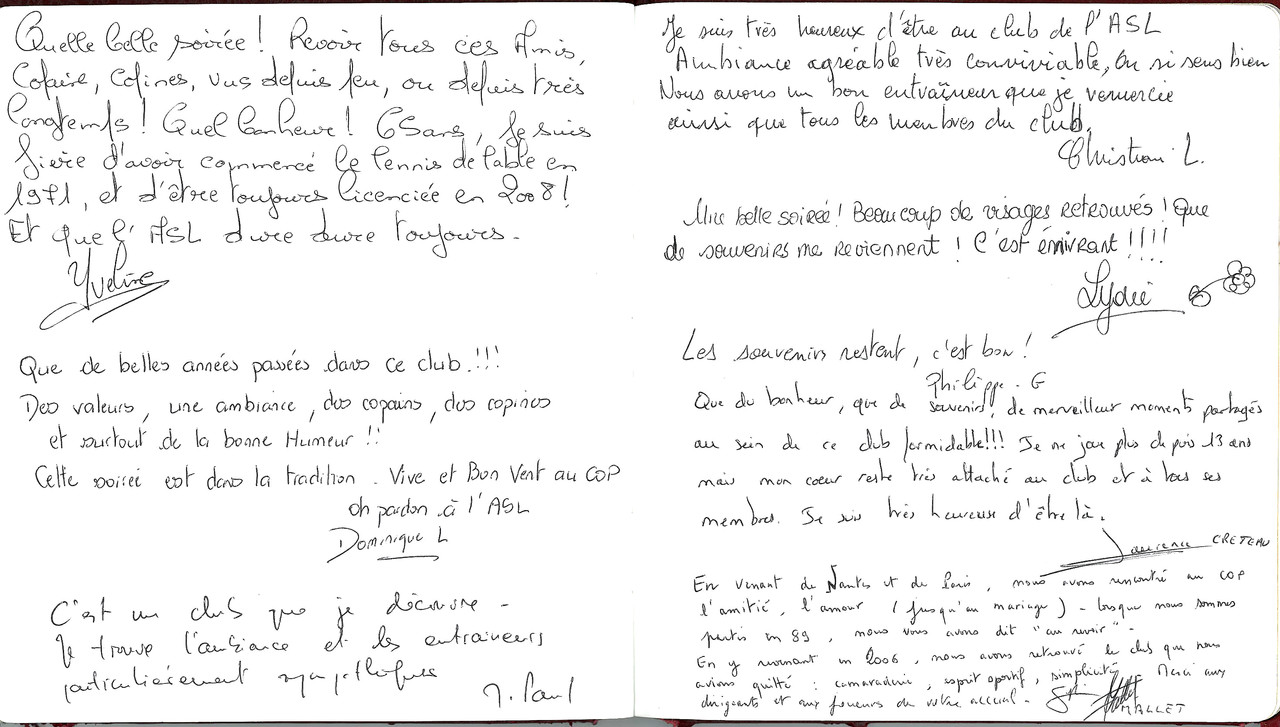 Quelle belle soirée ! Revoir tous ces Amis,
Copains, Copines, vus depuis peu, ou depuis très
longtemps ! Quel bonheur ! 65 ans, Je suis
fière d'avoir commencé le Tennis de Table en
1971, et d'être toujours licenciée en 2008 !
Et que l'ASL dure dure toujours.
Yveline
Que de belles années passées dans ce club.!!!
Des valeurs, une ambiance, des copains, des copines
et surtout de la bonne Humeur !!
Cette soirée est dans la tradition. Vive et Bon Vent au COP
oh pardon à l'ASL
Dominique L
C'est un club que je découvre -
Je trouve l'ambiance et les entraineurs
particulièrement sympathiques
J. Paul
Je suis très heureux d'être au club de l'ASL
Ambiance agréable très conviviable, On si sens bien
Nous avons un bon entraîneur que je remercie
ainsi que tous les membres du club.
Christian L.
belle soirée ! Beaucoup de visages retrouvés ! Que
de souvenirs me reviennent ! C'est énivrant !!!!
Lydie
Les souvenirs restent, c'est bon !
Philippe - G
Que du bonheur, que de souvenirs, de merveilleux moments partagés
au sein de ce club formidable!!! Je ne joue plus depuis 13 ans
mais mon coeur reste très attaché au club et à tous ses
membres. Je suis très heureuse d'être là.
Laurence CRETEAU
En venant de Nantes et de Paris, nous avons rencontré au COP
l'amitié, l'amour (jusqu'au mariage) - lorsque nous sommes
partis en 89, nous vous avons dit "au revoir" -
En y revenant en 2006, nous avons retrouvé le club que nous
avions quitté : camaraderie, esprit sportif, simplicité Merci aux
dirigeants et aux joueurs de votre accueil -
MALLET